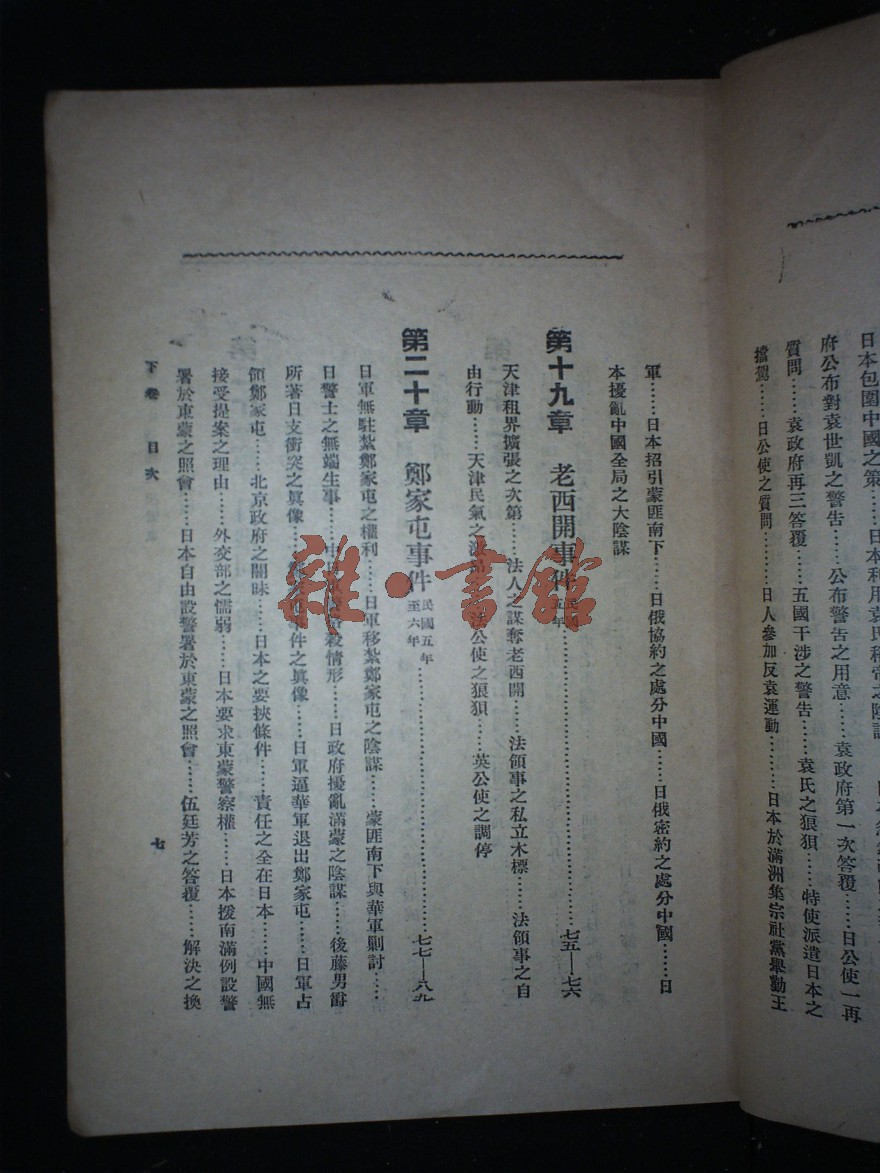 日本包圍中國之策……日本利用袁氏稱帝之陰謀
府公布對袁世凱之警告……公布警告之用意……袁政府第一次答覆……日公使一再
質問……袁政府再三答覆……五國干涉之警告……袁氏之狼狽……特使派遣日本之
擋駕……日公使之質問……日人參加反袁運動……日本於滿洲集宗社黨舉勤王
軍……日本招引蒙匪南下……日俄協約之處分中國……日俄密約之處分中國……日
本擾亂中國全局之大陰謀
第十九章 老西開事件 民國五年……七五—七六
天津租界擴張之次第……法人之謀奪老西開……法領事之私立木標……法領事之自
由行動……天津民氣之激昂……法公使之狼狽……英公使之調停
第二十章 鄭家屯事件 民國五年至六年……七七—八九
日軍無駐紮鄭家屯之權利……日軍移紮鄭家屯之陰謀……蒙匪南下與華軍剿討……
日警士之無端生事……中日 殺情形……日政府擾亂滿蒙之陰謀……後藤男爵
所著日支衝突之眞像…… 事件之眞像……日軍逼華軍退出鄭家屯……日軍占
領鄭家屯……北京政府之闇昧……日本之要挾條件……責任之全在日本……中國無
接受提案之理由……外交部之懦弱……日本要求東蒙警察權……日本援南滿例設警
署於東蒙之照會……日本自由設警署於東蒙之照會……伍廷芳之答覆……解決之換
下卷 目次 七
雜·書館